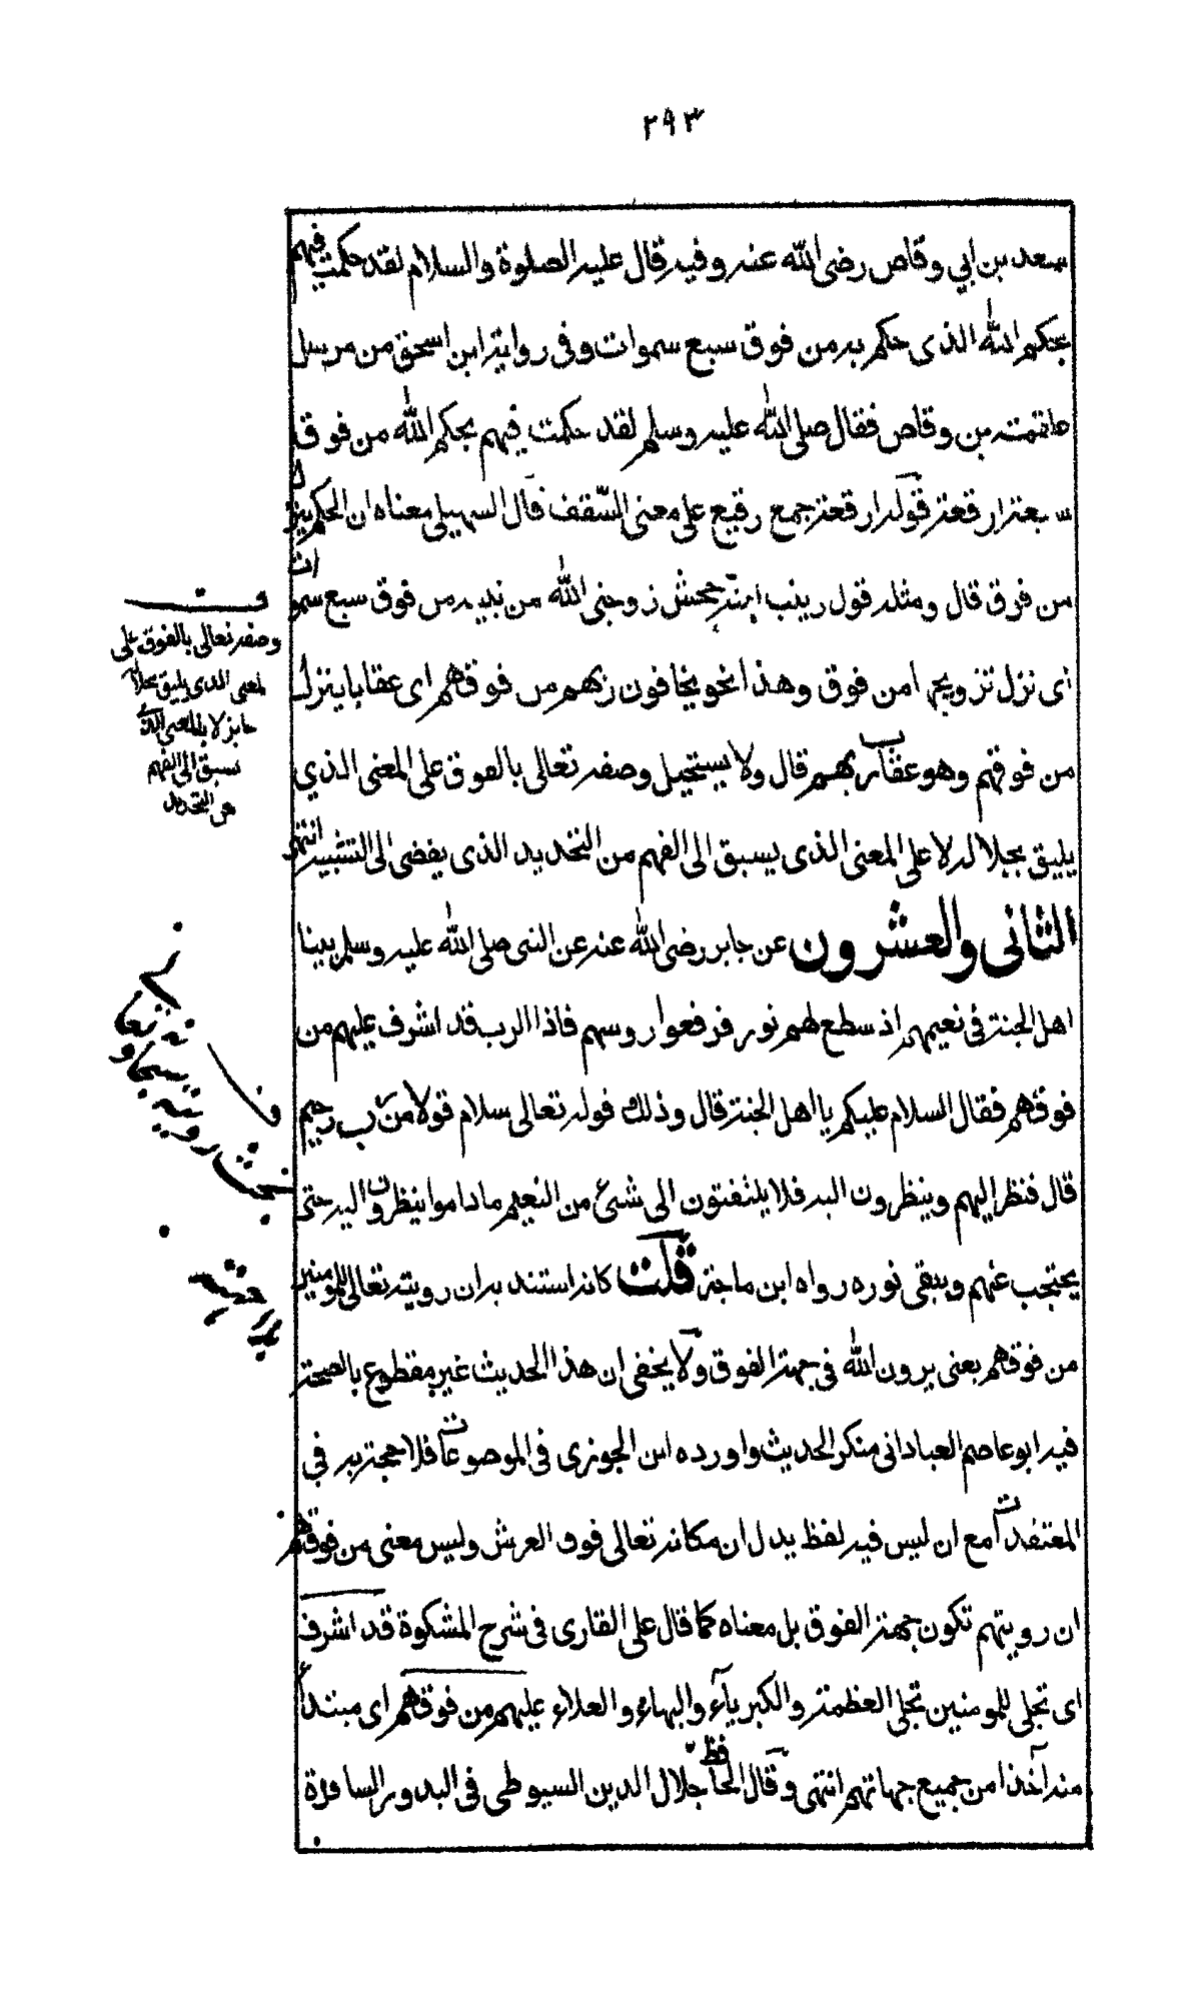 ٢٩٣
سعد بن ابي وقاص رضى الله عنه وفيه قال عليه الصلوة والسلام لقد حكمت فيهم
بحكم الله الذى حكم به من فوق سبع سموات وفى رواية ابن اسحق من مرسل
علقمة بن وقاص فقال صلى الله عليه وسلم لقد حكمت فيهم بحكم الله من فوق
سبعة ارقعة قوله ارقعة جمع رقيع على معنى السّقف قال السهيلى معناه ان الحكم ينزل
من فوق قال ومثله قول زينب ابنة جحش زوجنى الله من نبيه من فوق سبع سموات
اى نزل تزويجها من فوق وهذا نحو يخافون ربهم من فوقهم اى عقابا ينزل
من فوقهم وهو عقاب ربهم قال ولا يستحيل وصفه تعالى بالفوق على المعنى الذي
يليق بجلاله لا على المعنى الذى يسبق الى الفهم من التحديد الذى يفضى الى التشبيه انتهى
الثانى والعشرون عن جابر رضى الله عنه عن النبى صلى الله عليه وسلم بينا
اهل الجنة فى نعيمهم اذ سطع لهم نور فرفعوا روسهم فاذا الرب قد اشرف عليهم من
فوقهم فقال السلام عليكم يا اهل الجنة قال وذلك قوله تعالى سلام قولا من رب رحيم
قال فنظر اليهم وينظرون اليه فلا يلتفتون الى شئ من النعيم ما داموا ينظرون اليه حتى
يحتجب عنهم ويبقى نوره رواه ابن ماجة قلت كانه استند به ان رويته تعالى للمومنين
من فوقهم بعنى يرون الله فى جهة الفوق ولا يخفى ان هذا الحديث غير مقطوع بالصحة
فيه ابو عاصم العبادانى منكر الحديث واورده ابن الجوزى فى الموضوعات فلا حجة به فى
المعتقدات مع ان ليس فيه لفظ يدل ان مكانه تعالى فوق العرش وليس معنى من فوقهم
ان رويتهم تكون جهة الفوق بل معناه كما قال على القارى فى شرح المشكوة قد اشرف
اى تجلى للمومنين تجلى العظمة والكبرياء والبهاء والعلاء عليهم من فوقهم اى مبتدأ
منه آخذا من جميع جهاتهم انتهى وقال الحافظ جلال الدين السيوطى فى البدور السافرة
ف
وصفه تعالى بالفوق على
لمعنى الذى يليق بجلاله
جايز لا بالمعنى الذى
سبق الى الفهم
من التحديد
ف
بحث رويته سبحانه وتعالى